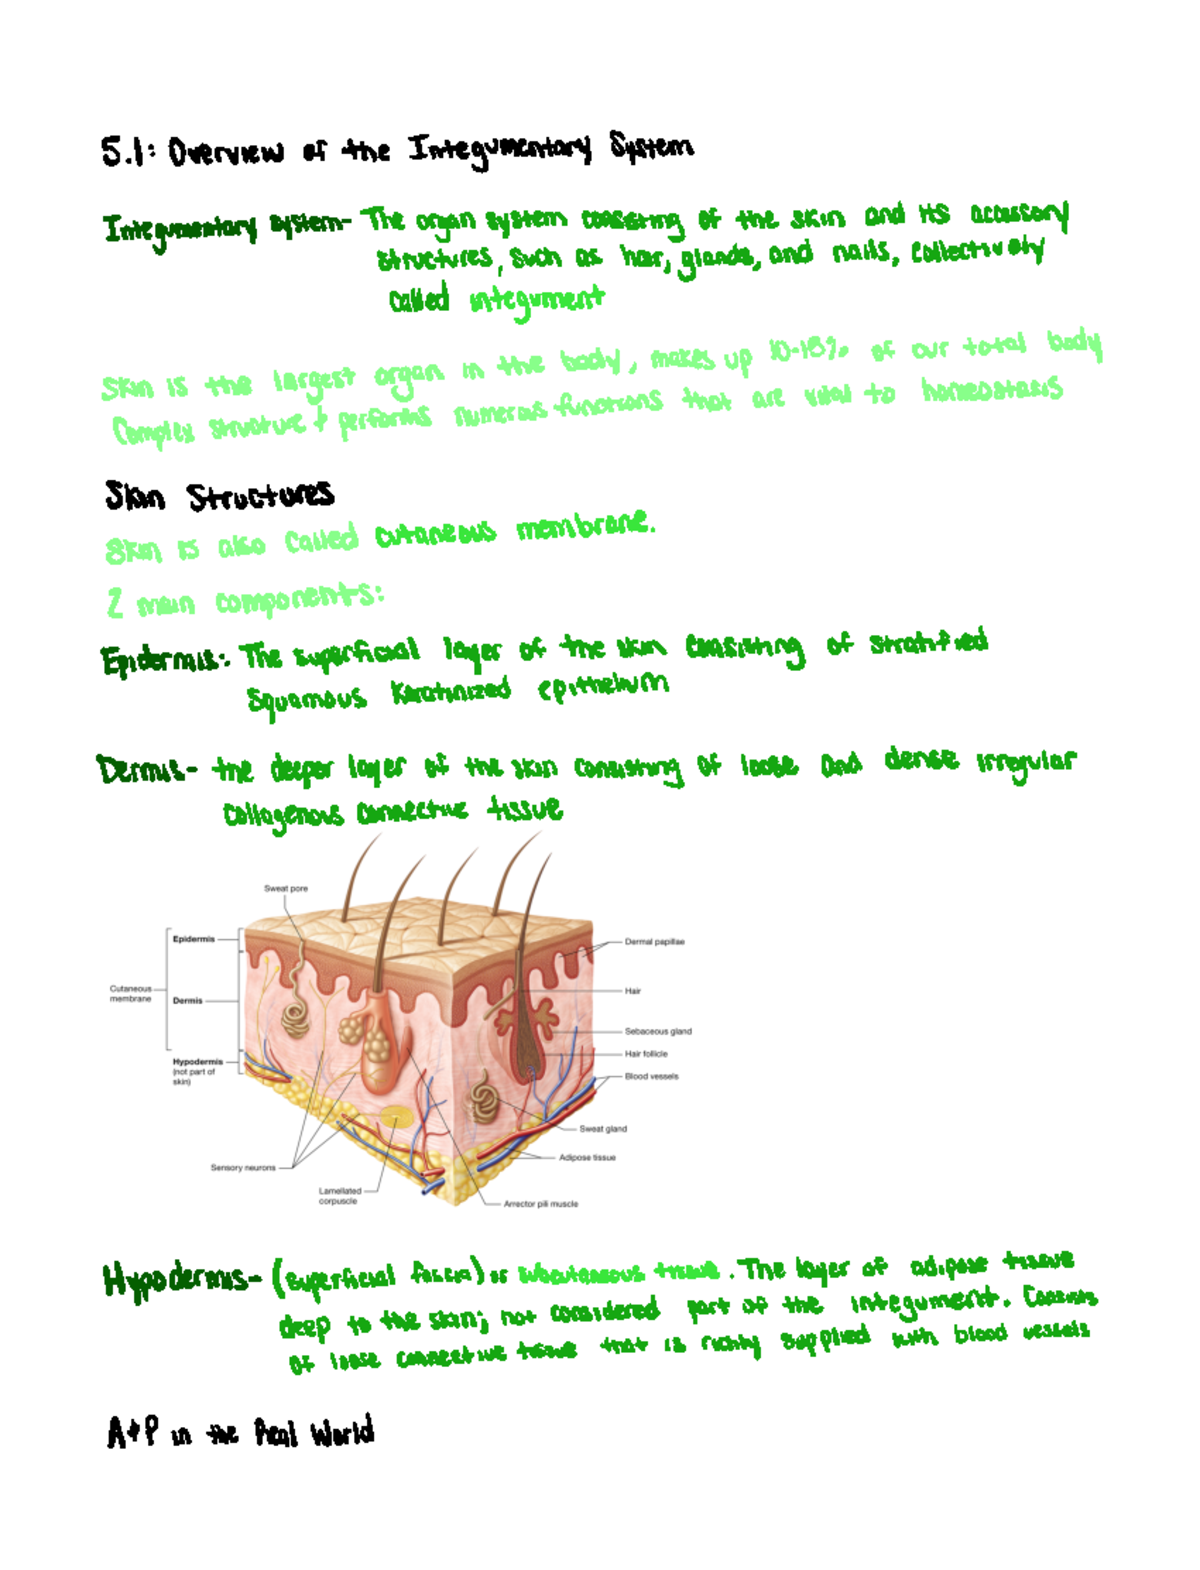 5.1: Overview of the Integumentary System
Integumentary system- The organ system consisting of the skin and its accessory
structures, such as hair, glands, and nails, collectively
called integument
Skin is the largest organ in the body, makes up 10-18% of our total body
Complex structure & performs numerous functions that are vital to homeostasis
Skin Structures
Skin is also called cutaneous membrane.
2 main components:
Epidermis: The superficial layer of the skin consisting of stratified
squamous keratinized epithelium
Dermis- the deeper layer of the skin consisting of loose and dense irregular
collagenous connective tissue
Sweat pore
Epidermis
Dermal papillae
Cutaneous
membrane
Dermis
Hair
Sebaceous gland
Hypodermis
(not part of
skin)
Hair follicle
Blood vessels
Sweat gland
Adipose tissue
Sensory neurons
Lamellated
corpuscle
Arrector pili muscle
Hypodermis- (superficial fascia) or subcutaneous tissue. The layer of adipose tissue
deep to the skin; not considered part of the integument. Consists
of loose connective tissue that is richly supplied with blood vessels
A+P in the Real World